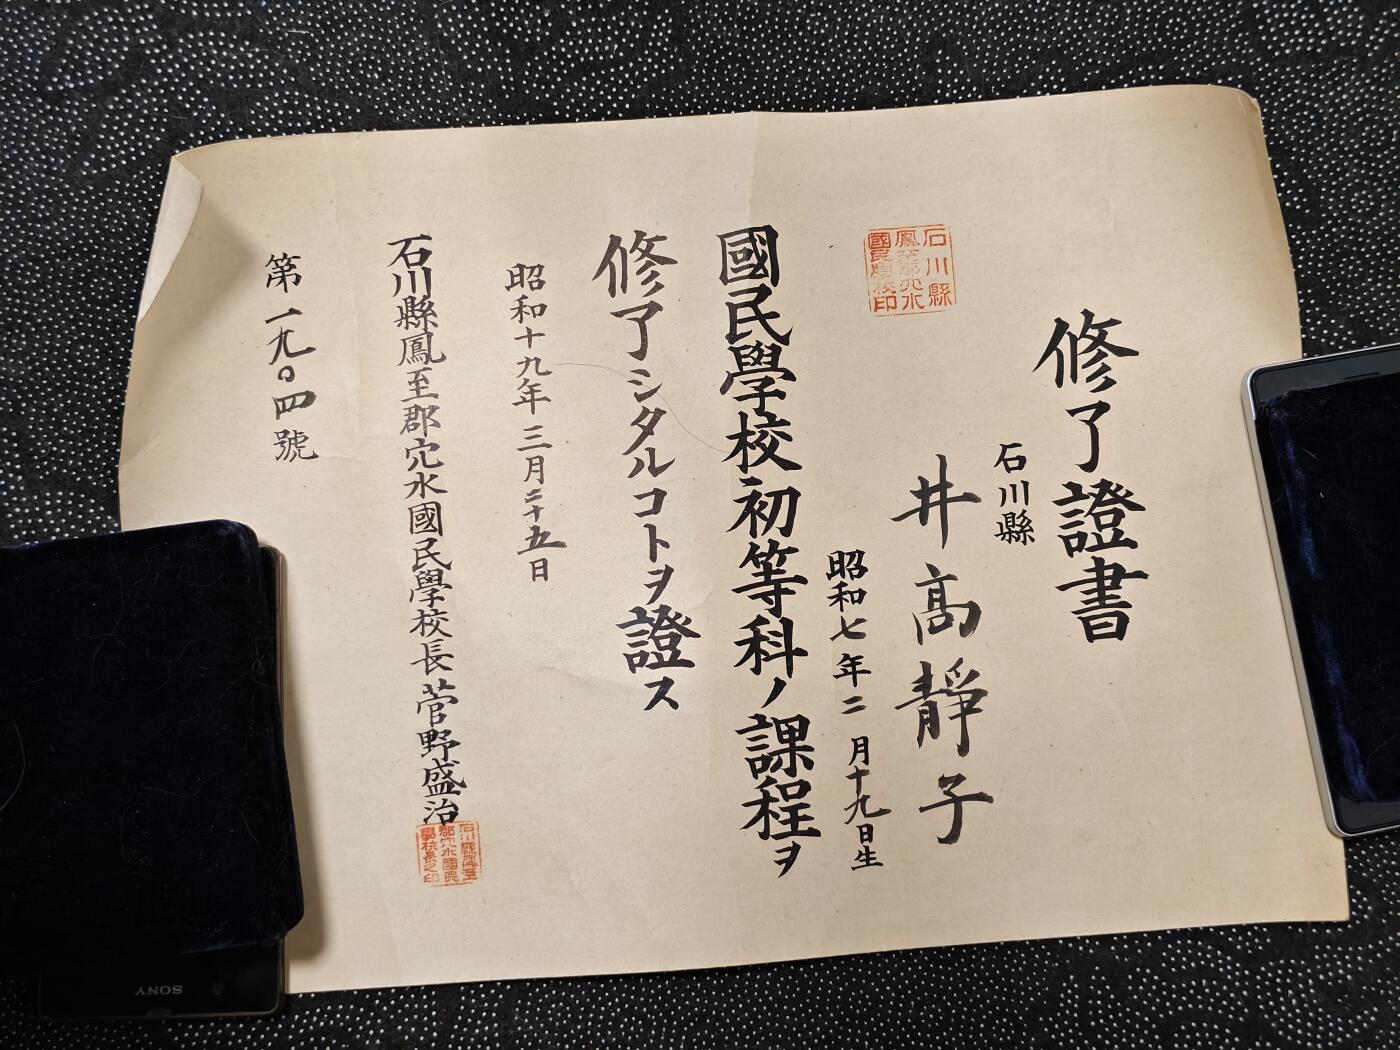 修了證書
石川縣
井高靜子
昭和七年二月十九日生
國民學校初等科ノ課程ヲ
修了シタルコトヲ證ス
昭和十九年三月二十五日
石川縣鳳至郡穴水國民學校長菅野盛治
第一九〇四號
石川縣
鳳至郡穴水
國民學校印
石川縣鳳至
郡穴水國民
學校長之印
SONY